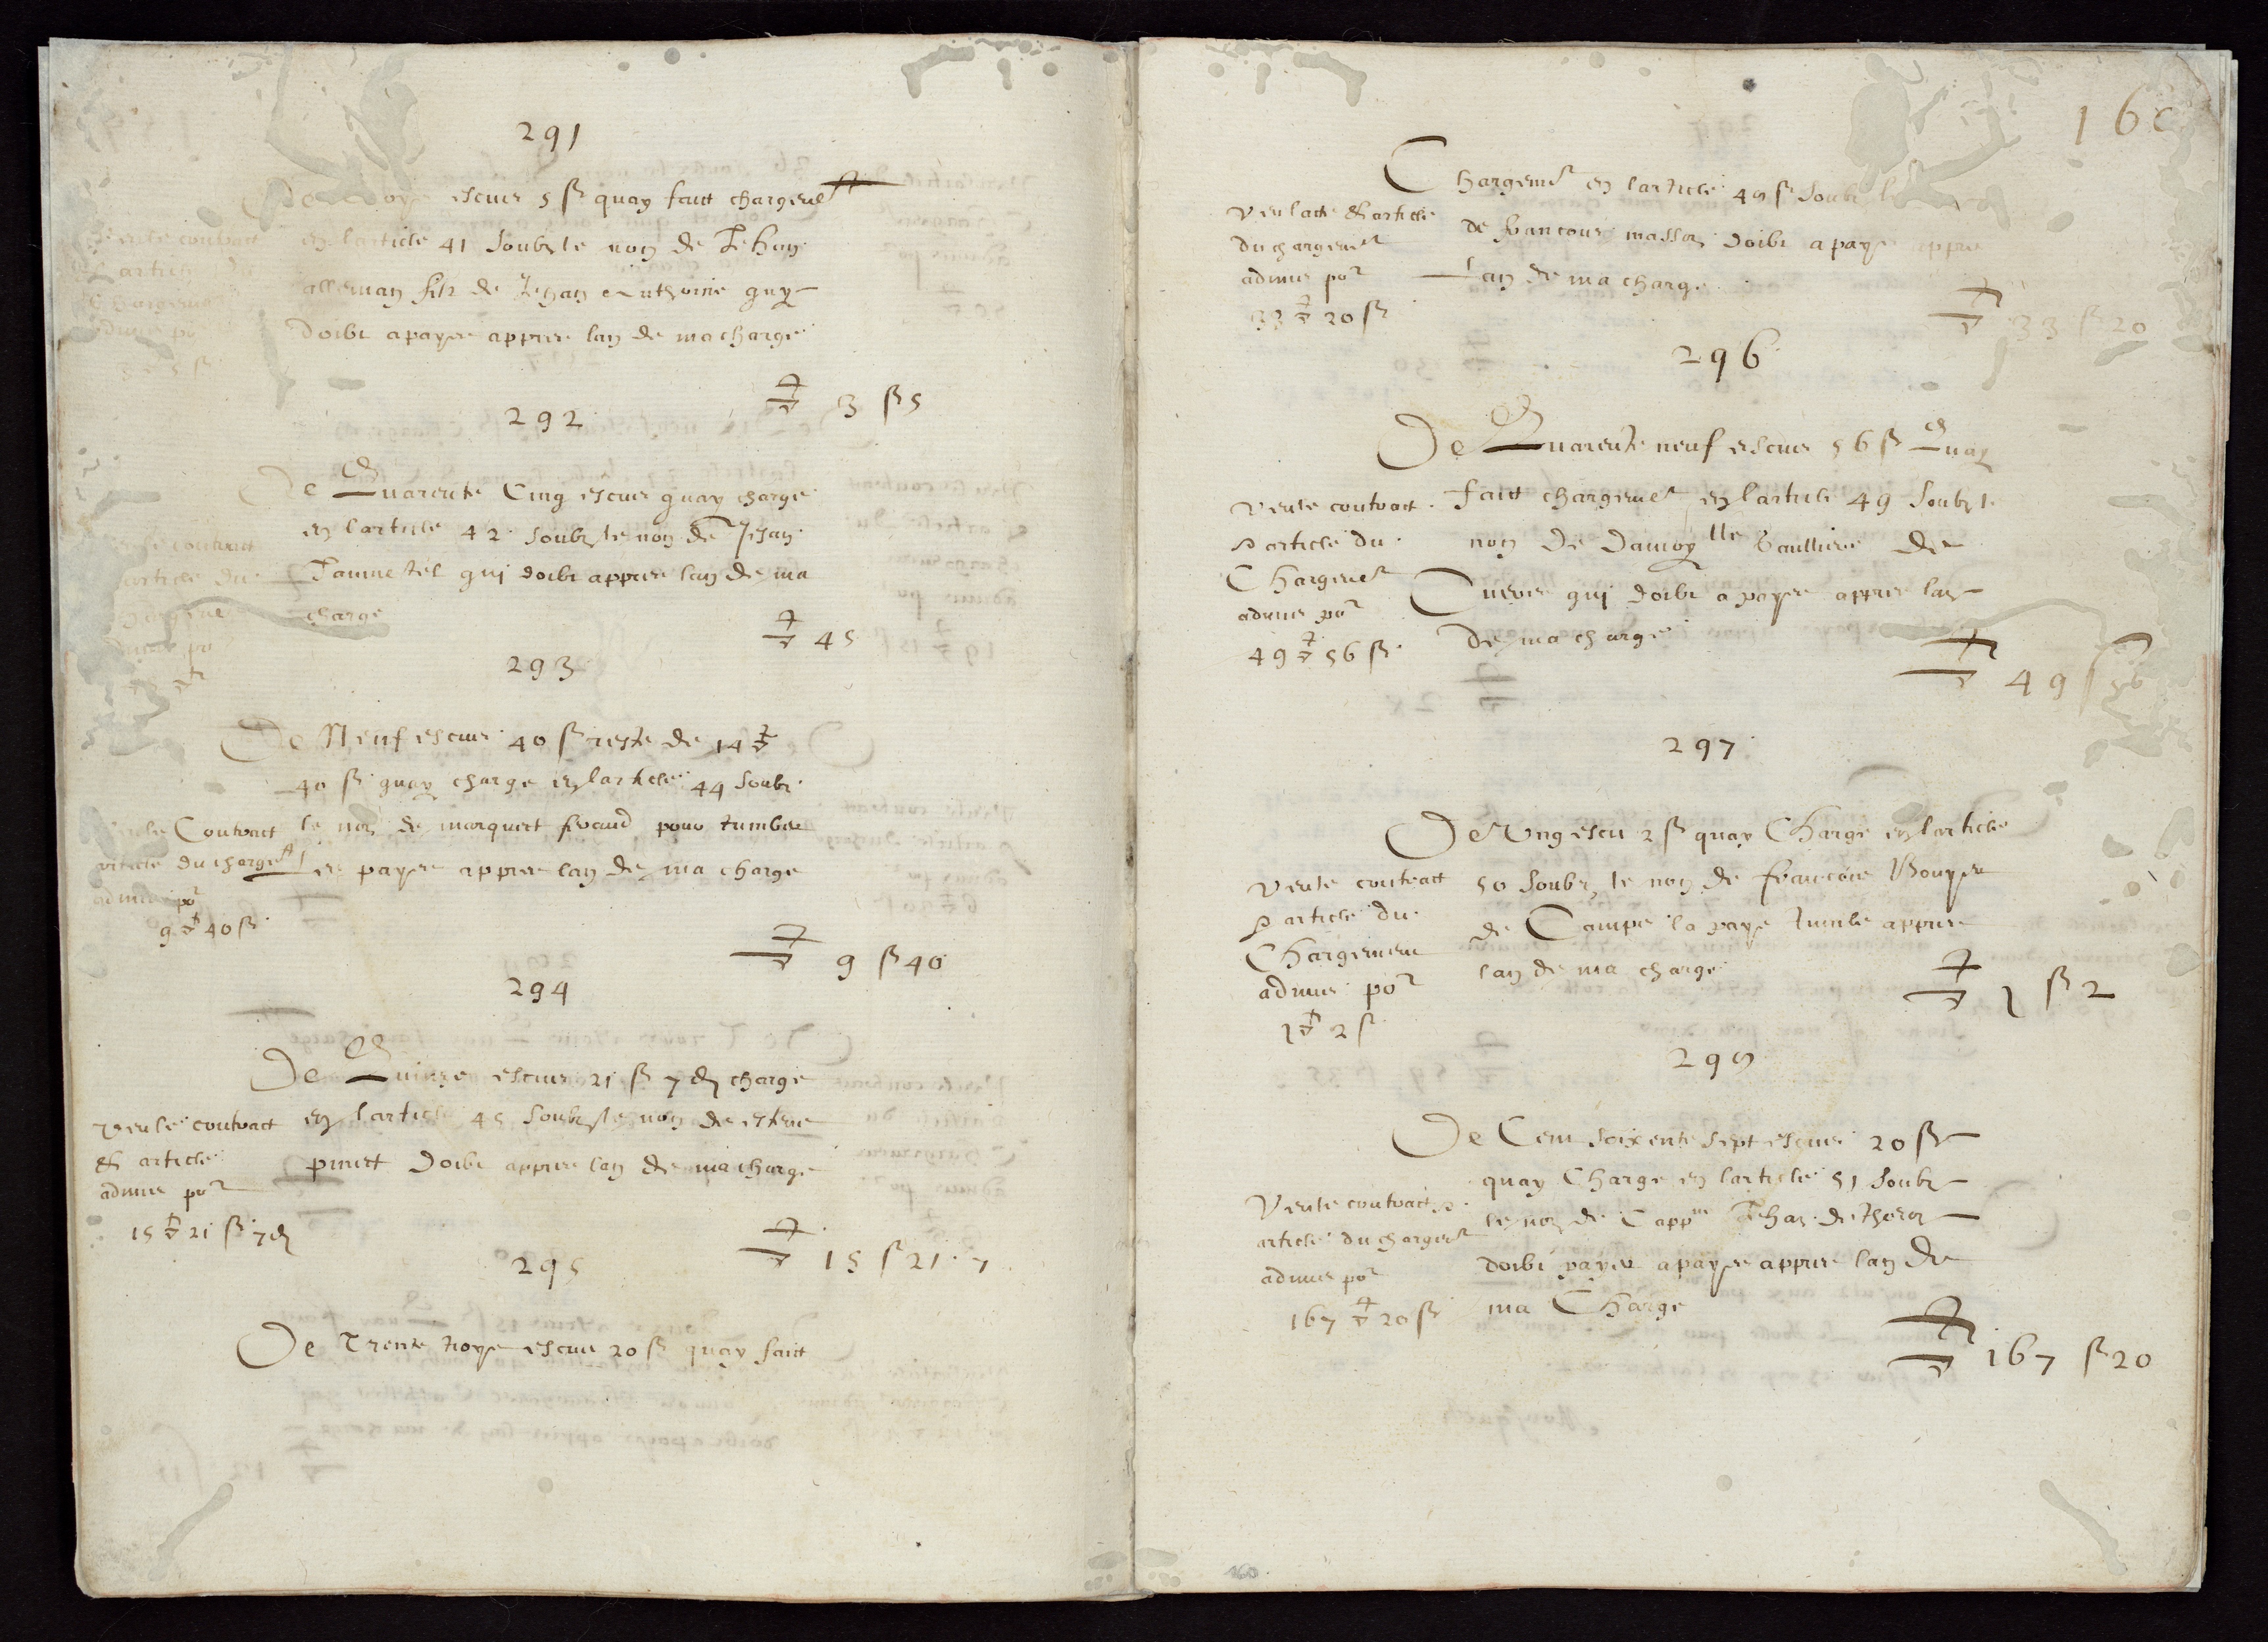 291
De troys escus 5 ß quay faict chargemt
en larticle 41 soubz le non de Jehan
alleman filz de Jehan Anthoine guy
doibt a payer appres lan de ma charge
Veu le contract
article du
chargeme
admis po
3 5 ß
3 ß 5
292
De Quarente Cinq escus quay charge
en larticle 42 soubz le non de Jehan
qui doibt appres lan de ma
charge
Veu le contract
article du
chargeme
admis po
45
293
De Neuf escus 40 ß reste de 14
40 ß quay charge en larticle 44 soubz
le non de marquiet tumber
et payer appres lan de ma charge
Veu le Contract
article du chargemt
admis por
9 40 ß
9 ß 40
294
De Quinze escus 21 ß 7 d charge
en larticle 45 soubz le non de esteve
pinett doibt appres lan de ma charge
Veu le contract
et article
admis por
15 21 ß 7 d
15 ß 21 7
295
De Trente troys escus 20 ß quay faict
160
Chargemt en larticle 48 soubz le non
de francoys masson doibt a payer appres
lan de ma charge
Veu lacte et article
du chargemt
admis por
33 20 ß
33 ß 20
296
De Quarente neuf escus 56 ß Quay
faict chargemt en larticle 49 soubz le
non de damoylle Gaulliere de
qui doibt a payer appres lan
de ma charge
Veu le contract
& article du
Chargemt
admis por
49 56 ß
49 ß 56
297
De Ung escu 2 ß quay Charge en larticle
50 soubz le non de francois Bouyer
de Campe la paye tumbe appres
lan de ma charge
Veu le contract
& article du
Chargement
admis por
1 2 ß
1 ß 2
298
De Cent soixente sept escus 20 ß
quay Charge en larticle 51 soubz
le non de Cappne Jehan de thoron
doibt payer a payer appres lan de
ma Charge
Veu le contract &
article du chargemt
admis por
167 20 ß
167 ß 20
160